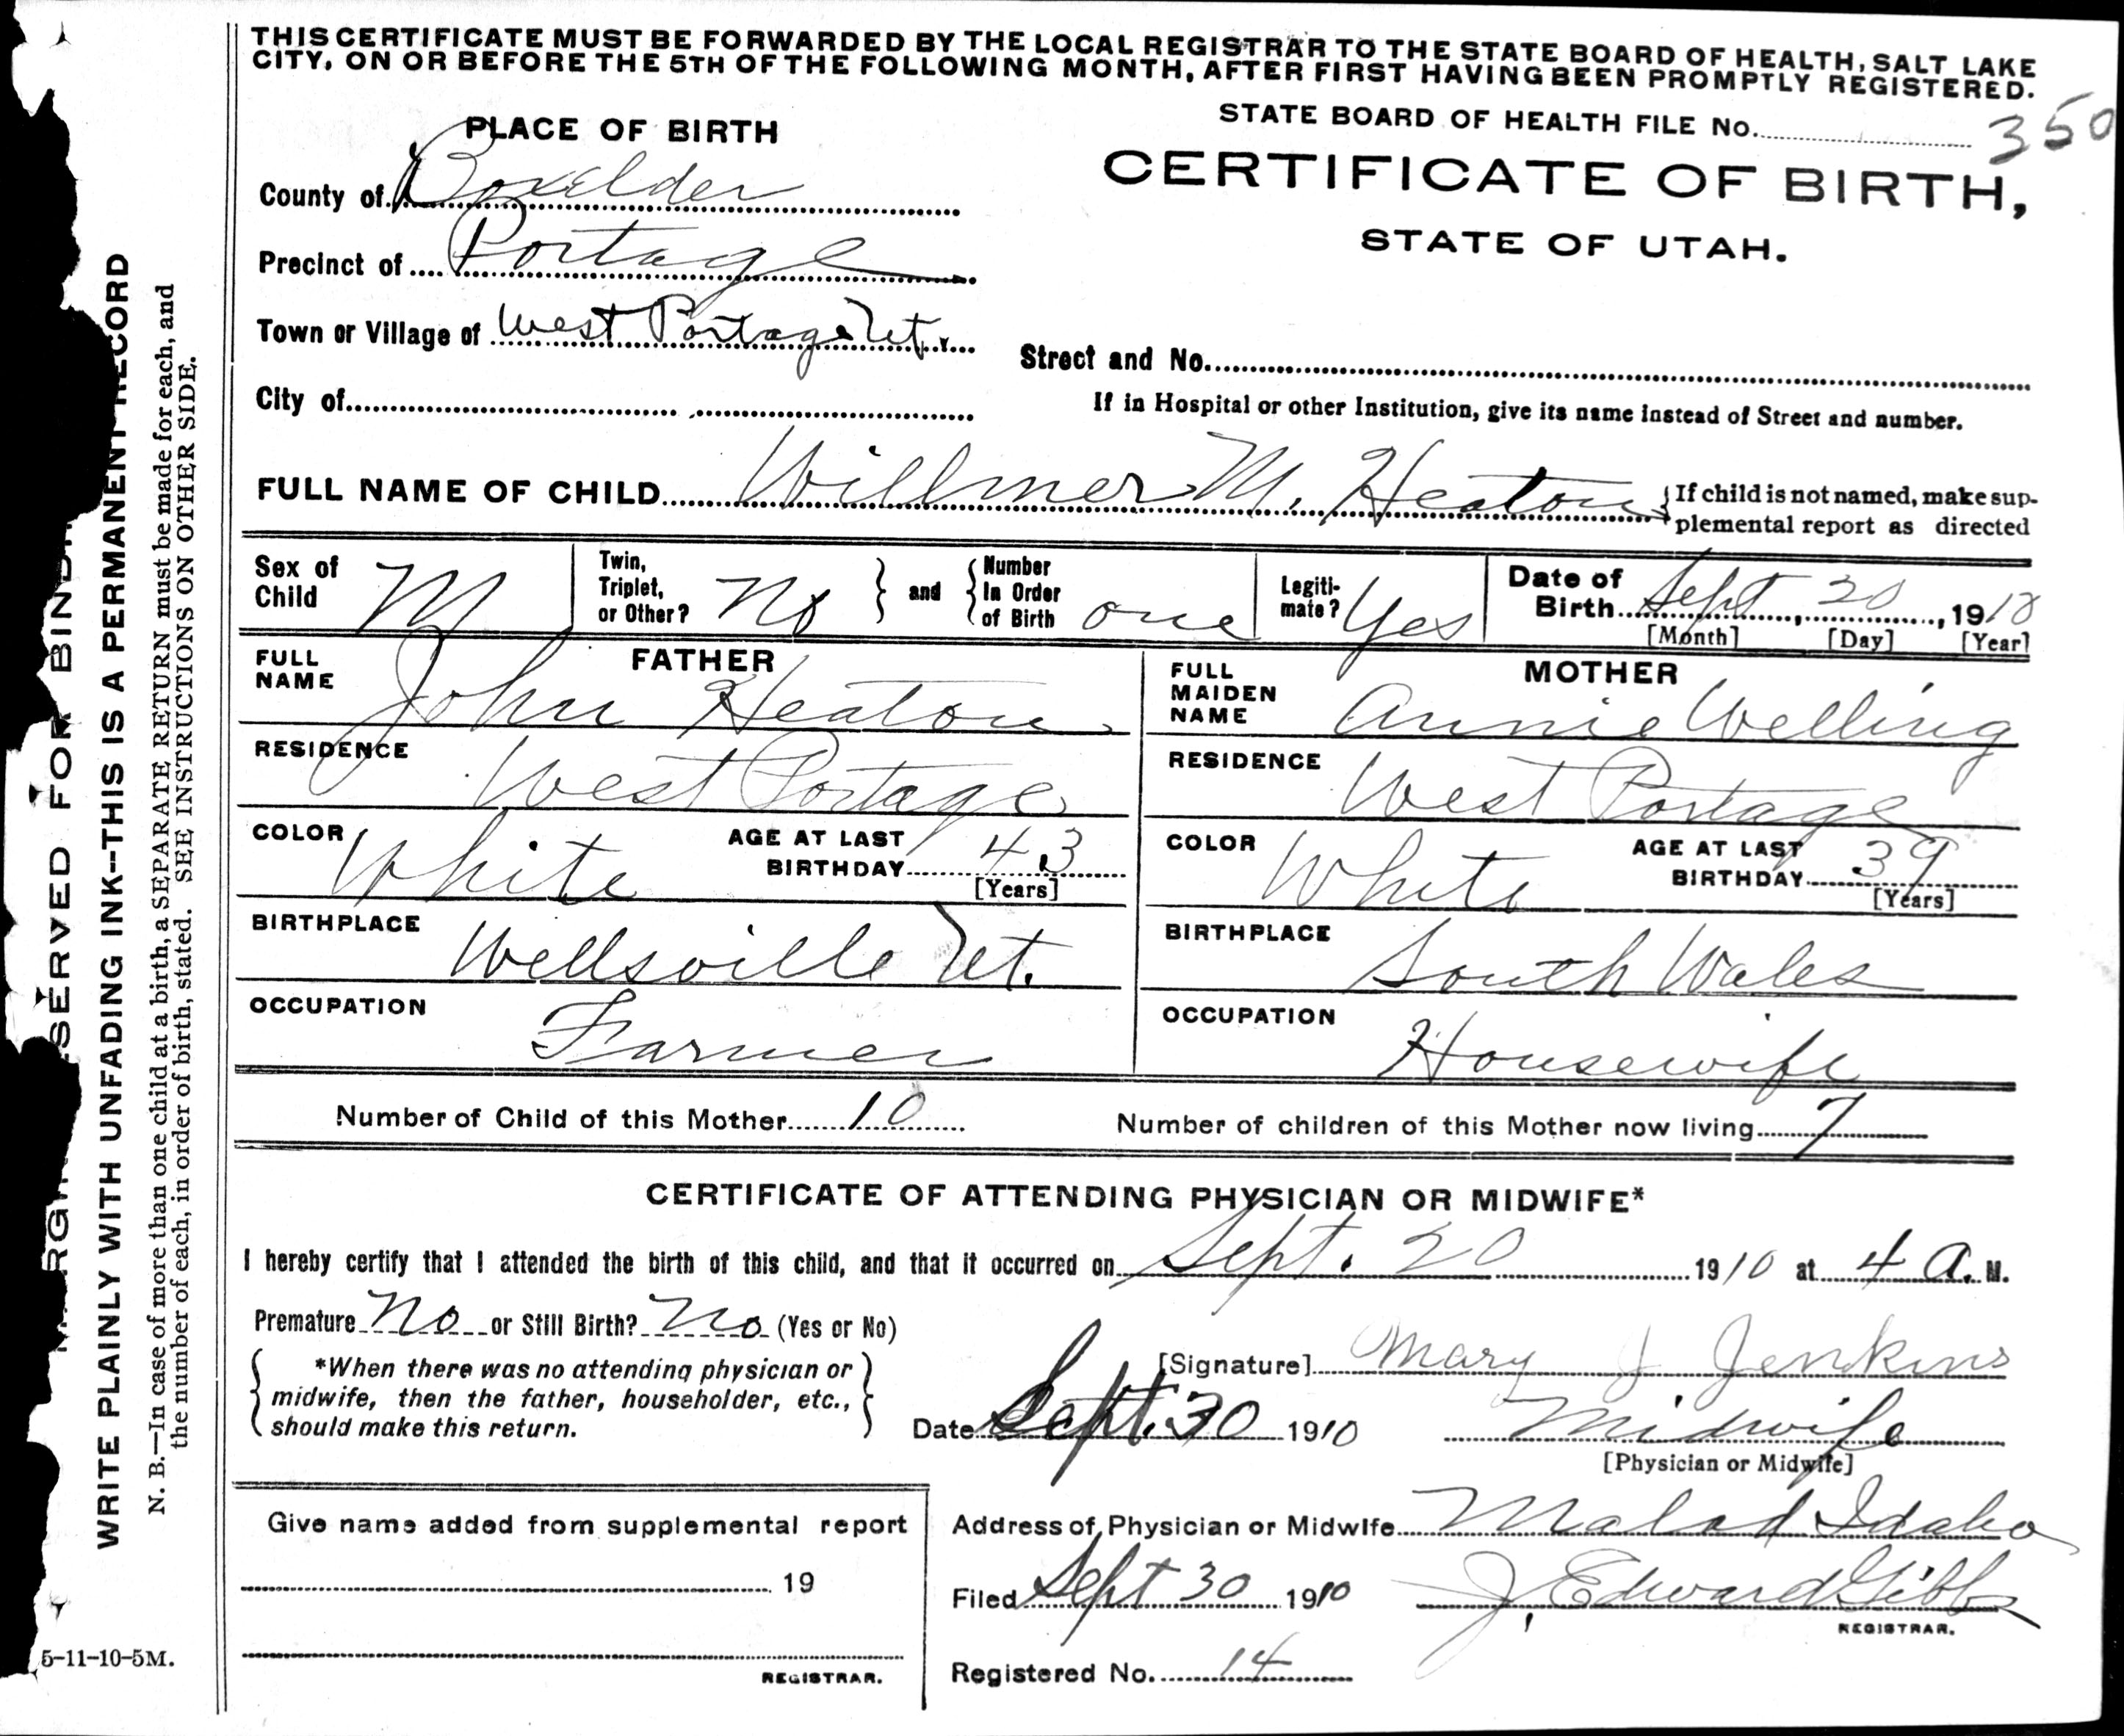 THIS CERTIFICATE MUST BE FORWARDED BY THE LOCAL REGISTRAR TO THE STATE BOARD OF HEALTH, SALT LAKE
CITY, ON OR BEFORE THE 5TH OF THE FOLLOWING MONTH, AFTER FIRST HAVING BEEN PROMPTLY REGISTERED.
STATE BOARD OF HEALTH FILE No. 350
PLACE OF BIRTH
CERTIFICATE OF BIRTH,
STATE OF UTAH.
County of Boxelder
Precinct of Portage
Town or Village of West Portage Ut.
Street and No.
City of
If in Hospital or other Institution, give its name instead of Street and number.
FULL NAME OF CHILD Willmer M. Heaton
If child is not named, make sup-
plemental report as directed
Sex of Child M
Twin, Triplet, or Other? No
and
Number In Order of Birth one
Legiti-mate? Yes
Date of Birth Sept 20, 1910
[Month] [Day] [Year]
FATHER
FULL NAME John Heaton
RESIDENCE West Portage
COLOR White
AGE AT LAST BIRTHDAY 43
[Years]
BIRTHPLACE Wellsville Ut.
OCCUPATION Farmer
MOTHER
FULL MAIDEN NAME Annie Welling
RESIDENCE West Portage
COLOR White
AGE AT LAST BIRTHDAY 39
[Years]
BIRTHPLACE South Wales
OCCUPATION Housewife
Number of Child of this Mother 10
Number of children of this Mother now living 7
CERTIFICATE OF ATTENDING PHYSICIAN OR MIDWIFE*
I hereby certify that I attended the birth of this child, and that it occurred on Sept. 20 1910 at 4 A. M.
Premature No or Still Birth? No (Yes or No)
*When there was no attending physician or
midwife, then the father, householder, etc.,
should make this return.
[Signature] Mary J Jenkins
Date Sept. 30 1910
Midwife
[Physician or Midwife]
Give name added from supplemental report
19
REGISTRAR.
Address of Physician or Midwife Malad Idaho
Filed Sept 30 1910
J. Edward Gibbs
REGISTRAR.
Registered No. 14
SERVED FOR BIND
WRITE PLAINLY WITH UNFADING INK--THIS IS A PERMANENT RECORD
N. B.—In case of more than one child at a birth, a SEPARATE RETURN must be made for each, and
the number of each, in order of birth, stated. SEE INSTRUCTIONS ON OTHER SIDE.
5-11-10-5M.